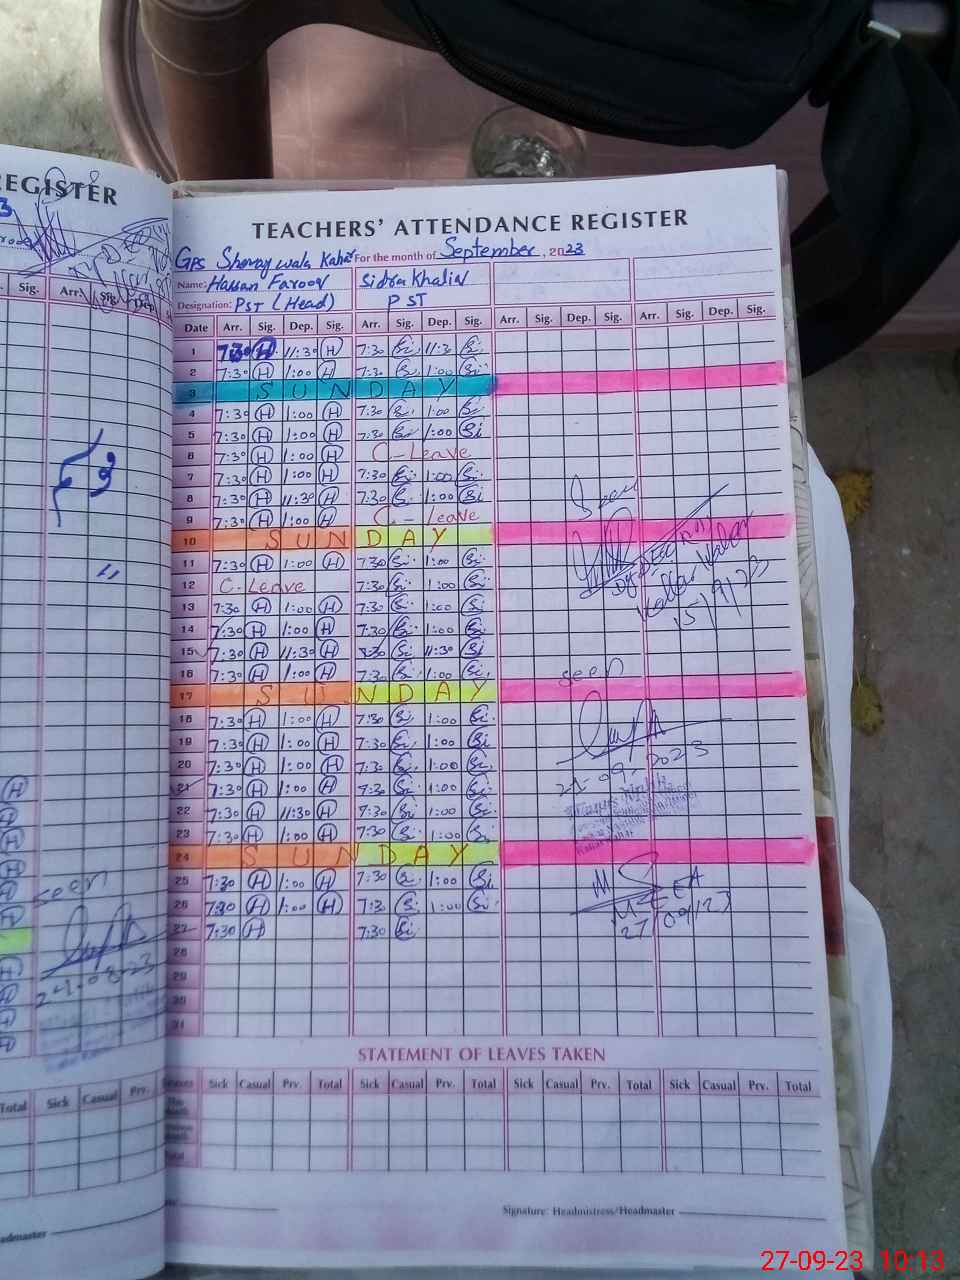 REGISTER
TEACHERS' ATTENDANCE REGISTER
GPS For the month of September, 2023
Name: Hassan Farooq Sidra Khalid
Designation: PST (Head) PST
Sig. Arr. Sig. Dep.
Date Arr. Sig. Dep. Sig. Arr. Sig. Dep. Sig. Arr. Sig. Dep. Sig. Arr. Sig. Dep. Sig.
1 7:30 H 11:30 H 7:30 Si 11:30 Si
2 7:30 H 1:00 H 7:30 Si 1:00 Si
3 SUNDAY
4 7:30 H 1:00 H 7:30 Si 1:00 Si
5 7:30 H 1:00 H 7:30 Si 1:00 Si
6 7:30 H 1:00 H C-Leave
7 7:30 H 1:00 H 7:30 Si 1:00 Si
8 7:30 H 11:30 H 7:30 Si 1:00 Si
Seen
9 7:30 H 1:00 H C-Leave
10 SUNDAY
11 7:30 H 1:00 H 7:30 Si 1:00 Si
12 C-Leave 7:30 Si 1:00 Si
13 7:30 H 1:00 H 7:30 Si 1:00 Si
15/9/23
14 7:30 H 1:00 H 7:30 Si 1:00 Si
15 7:30 H 11:30 H Si 11:30 Si
16 7:30 H 1:00 H 7:30 Si 1:00 Si
seen
17 SUNDAY
18 7:30 H 1:00 H 7:30 Si 1:00 Si
19 7:30 H 1:00 H 7:30 Si 1:00 Si
20 7:30 H 1:00 H 7:30 Si 1:00 Si
21-09-2023
21 7:30 H 1:00 H 7:30 Si 1:00 Si
22 7:30 H 11:30 H 7:30 Si 1:00 Si
23 7:30 H 1:00 H 7:30 Si 1:00 Si
24 SUNDAY
25 7:30 H 1:00 H 7:30 Si 1:00 Si
26 7:30 H 1:00 H 7:30 Si 1:00 Si
MEEA
27/09/23
27 7:30 H 7:30 Si
28
29
30
31
seen
24-08-23
STATEMENT OF LEAVES TAKEN
Total Sick Casual Prv.
Leaves Sick Casual Prv. Total Sick Casual Prv. Total Sick Casual Prv. Total Sick Casual Prv. Total
Total
Signature: Headmistress/Headmaster
27-09-23 10:13